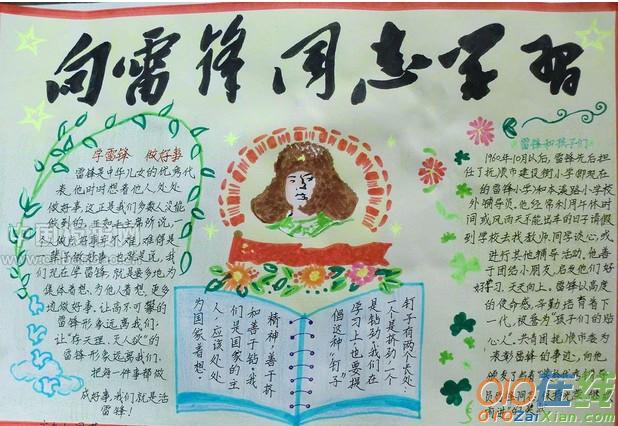 向雷锋同志学习
学雷锋 做好事
雷锋是中华儿女的优秀代
表,他时时想着他人处处
做好事,这正是我们多数人没能
做到的。
一个人
做点好事并不难,难得是
我
们现在学雷锋,就是要多地为
集体着想,为他人着想,更多
地做好事。让高不可攀的
雷锋形象远离我们,
让"存天理,灭人欲"的
雷锋形象远离我们,
把每一件事都做
成好事,我们就是活
雷锋!
钉子有两个长处:
一个是挤劲,一个
是钻劲,我们在
学习上也要提
倡这种"钉子"
精神,善于挤
和善于钻。我
们是国家的主
人,应该处处
为国家着想。
雷锋和孩子们
1960年10月以后,雷锋先后担
任了抚顺市建设街小学(即现在
的雷锋小学)和本溪路小学校
外辅导员,他经常利用午休时
间或风雨天不能出车的日子请假
到学校去找教师,同学谈心,或
进行其他辅导活动。他善
于团结小朋友,启发他们好
好学习,天天向上。雷锋以高度
的使命感,辛勤培育着下
一代,被誉为"孩子们的贴
心人"。共青团抚顺市委为
表彰雷锋的事迹,向他
010在线
010ZaiXian.Com